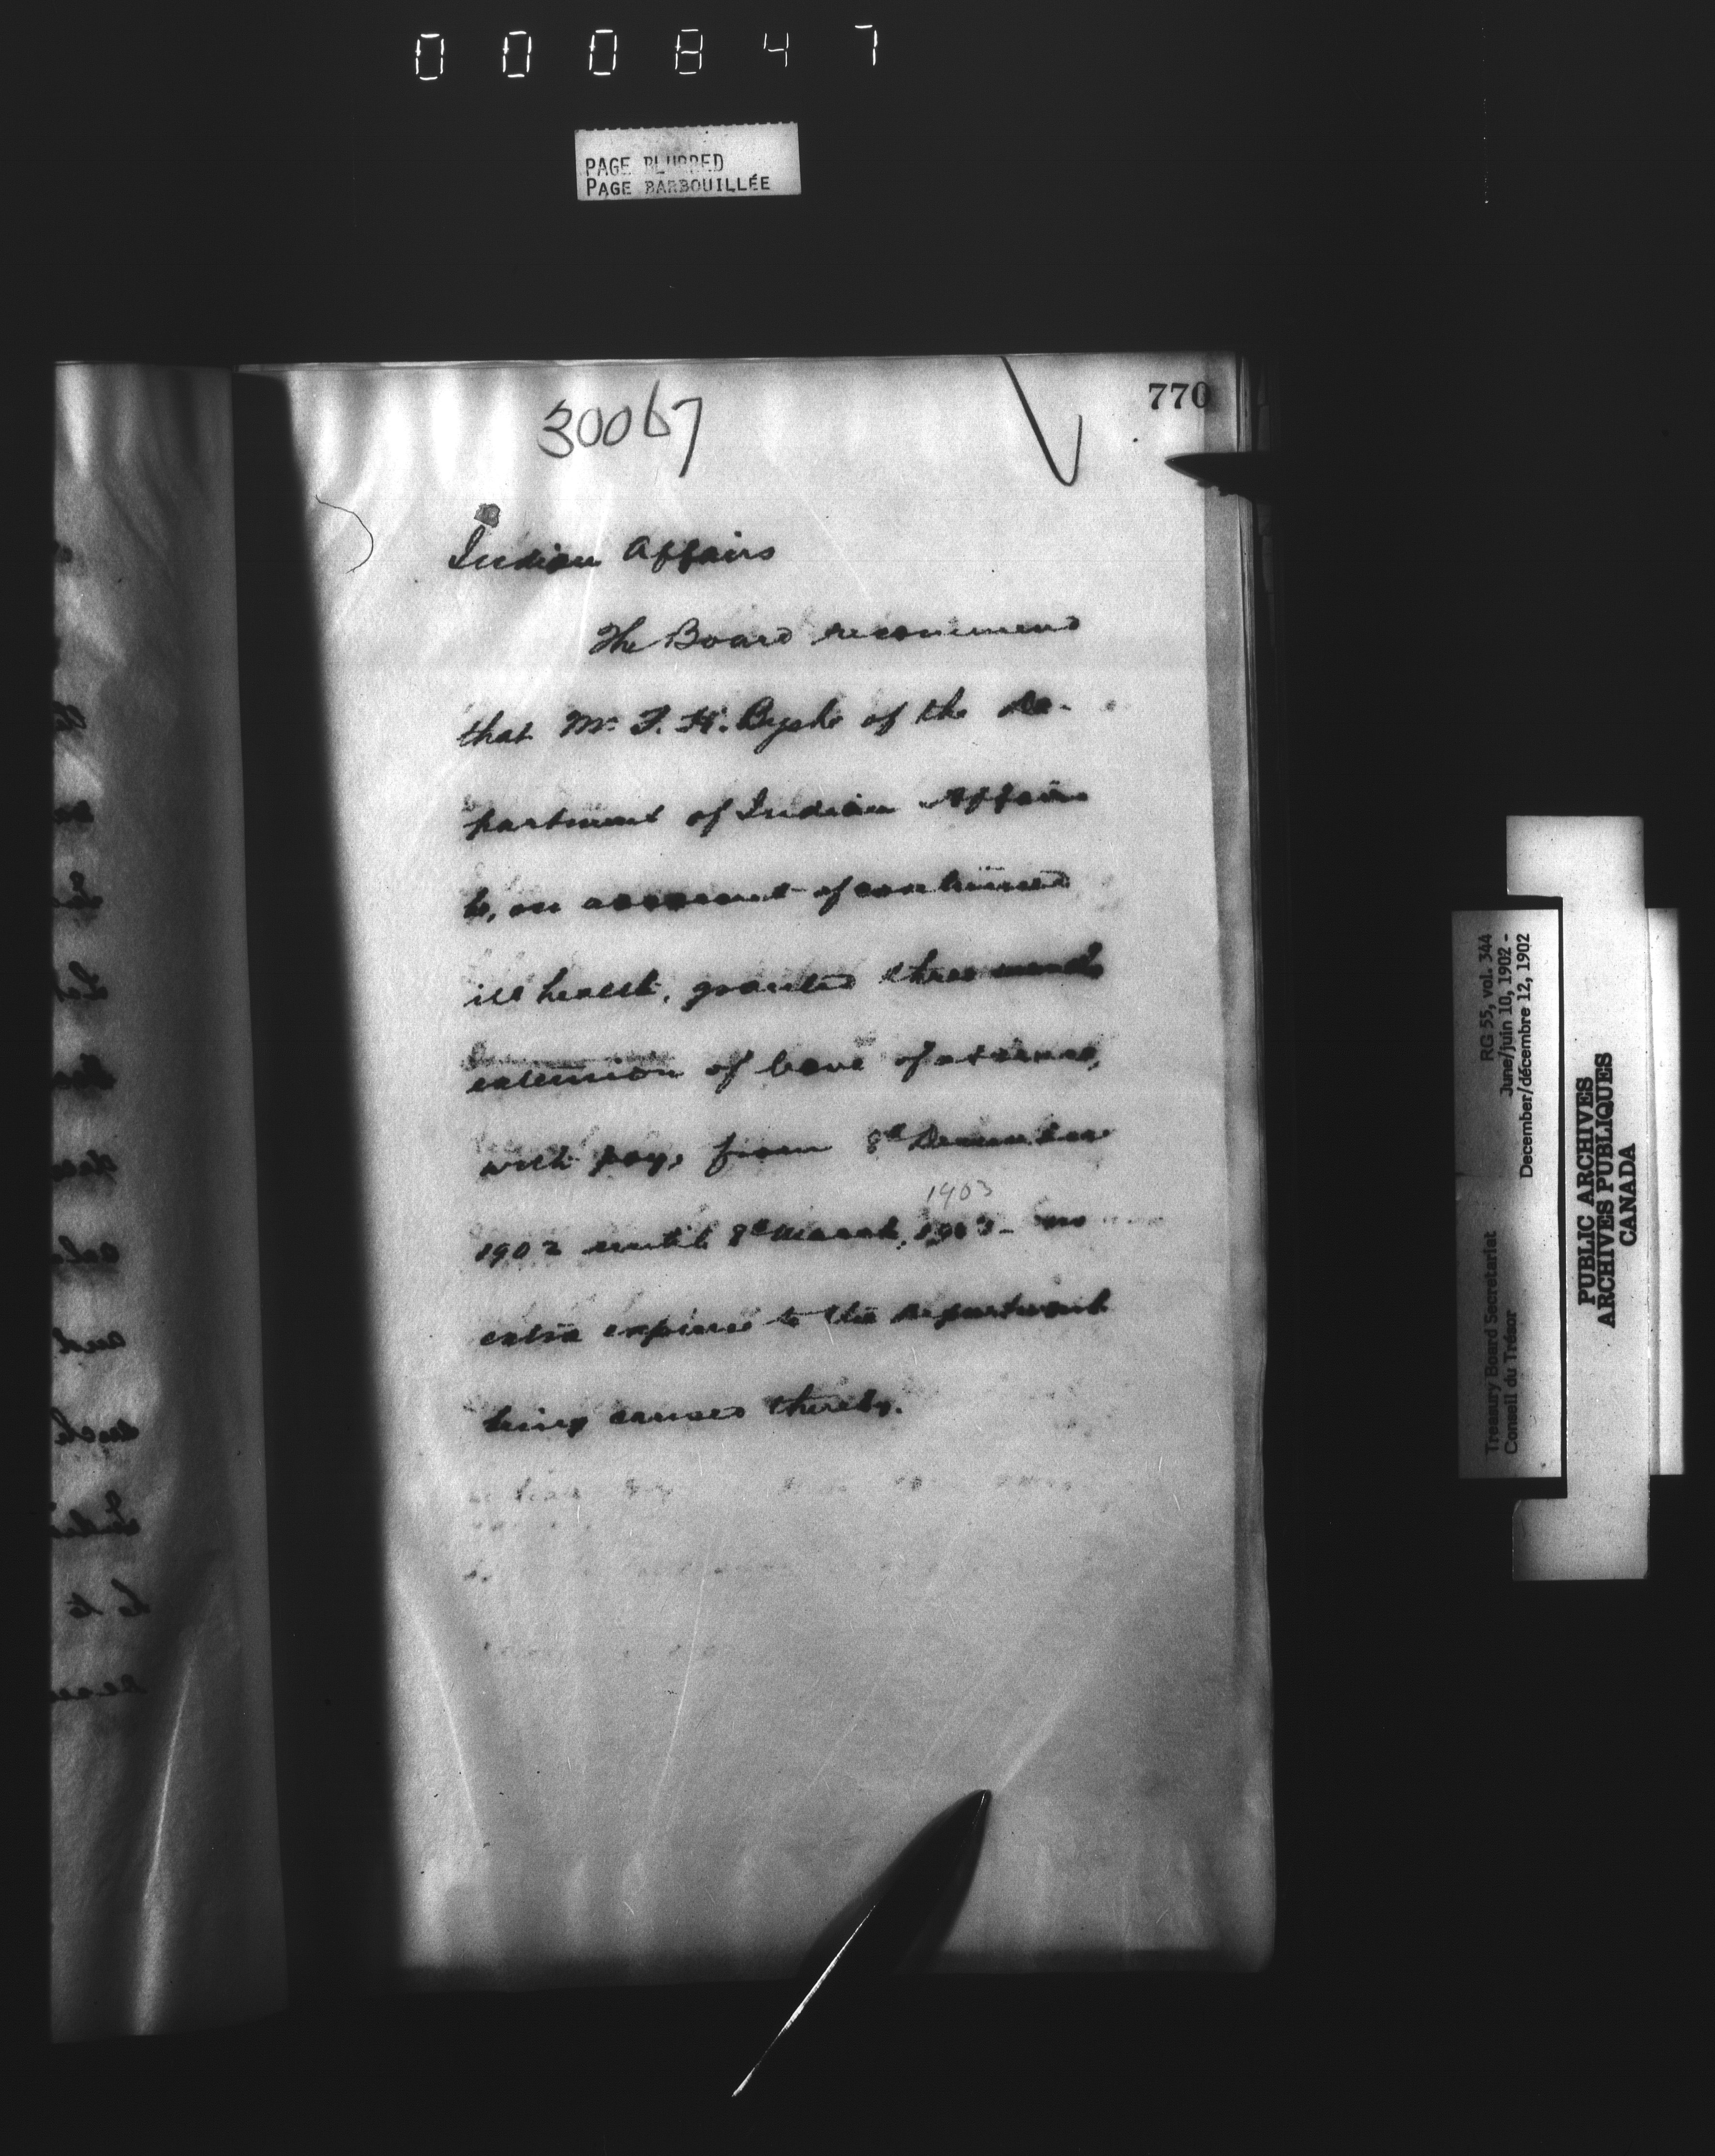 000847
PAGE BLURRED
PAGE BARBOUILLÉE
770
30067
Indian Affairs
The Board recommend
that Mr. F. H. Byshe of the De-
partment of Indian Affairs
be, on account of continued
ill health, granted three months
extension of leave of absence,
with pay, from 8th December
1903
1902 until 8th March, 1903 - no
extra expense to the Department
being caused thereby.
RG 55, vol. 344
June/juin 10, 1902 -
December/décembre 12, 1902
Treasury Board Secretariat
Conseil du Trésor
PUBLIC ARCHIVES
ARCHIVES PUBLIQUES
CANADA